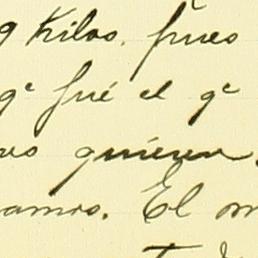 9 Kilos. pues
qe fué el qe
quieren
amos. El m